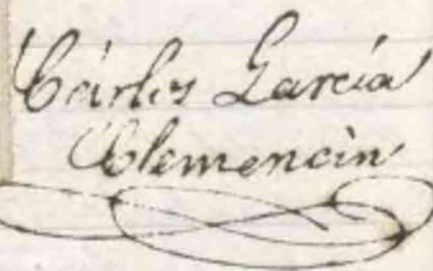 Cárlos García
Clemencín